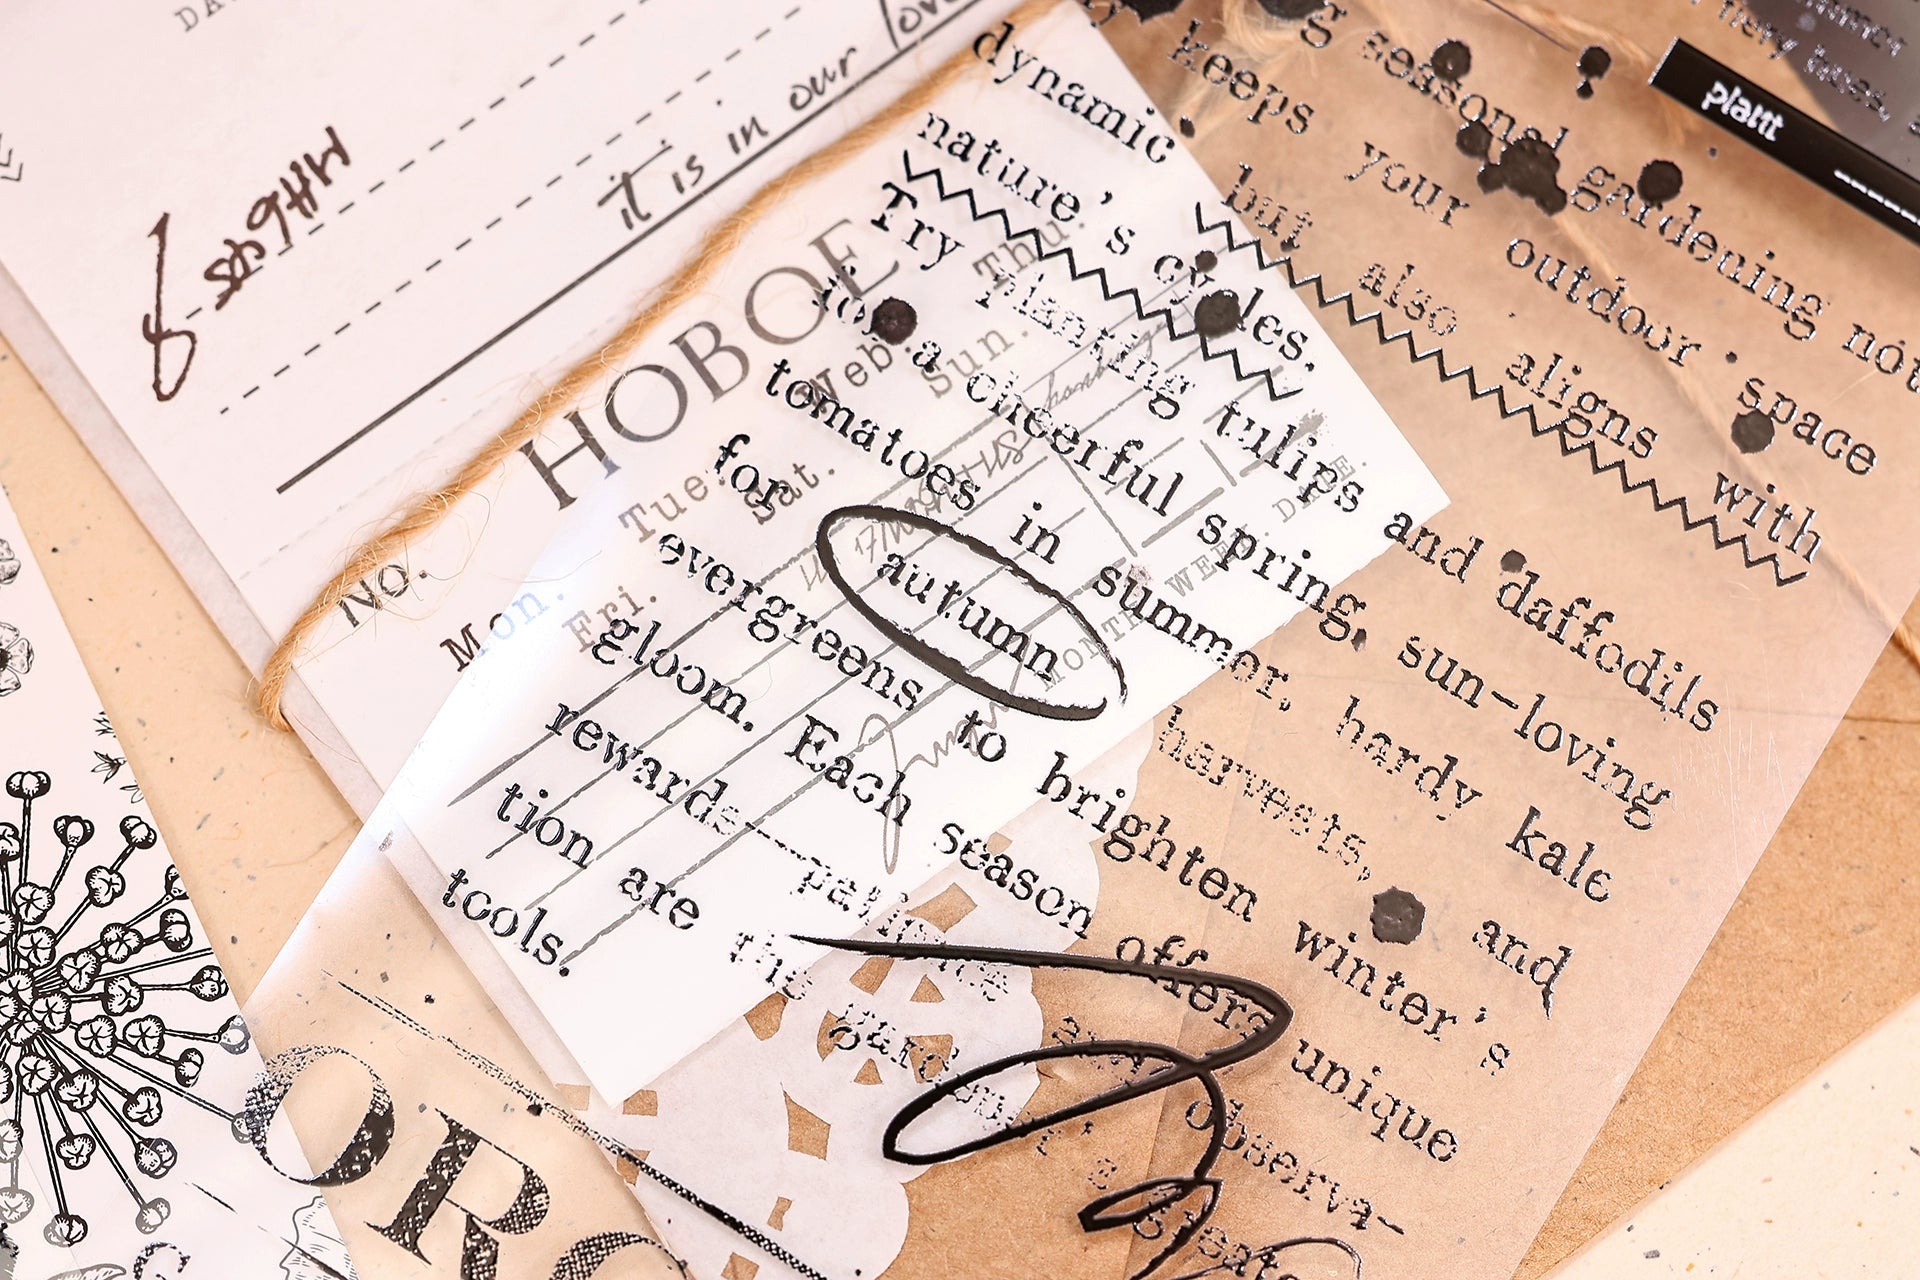 it is in our
HOBOE
No.
Mon.
Tue.
Web.
Thu.
Fri.
Sat.
Sun.
MONTH WEEK DATE.
plant
seasonal gardening not
keeps your outdoor space
dynamic but also aligns with
nature's cycles.
Try planting tulips and daffodils
for a cheerful spring, sun-loving
tomatoes in summer, hardy kale
for autumn harvests, and
evergreens to brighten winter's
gloom. Each season offers unique
rewards—patience and observa-
tion are the gardener's greatest
tools.